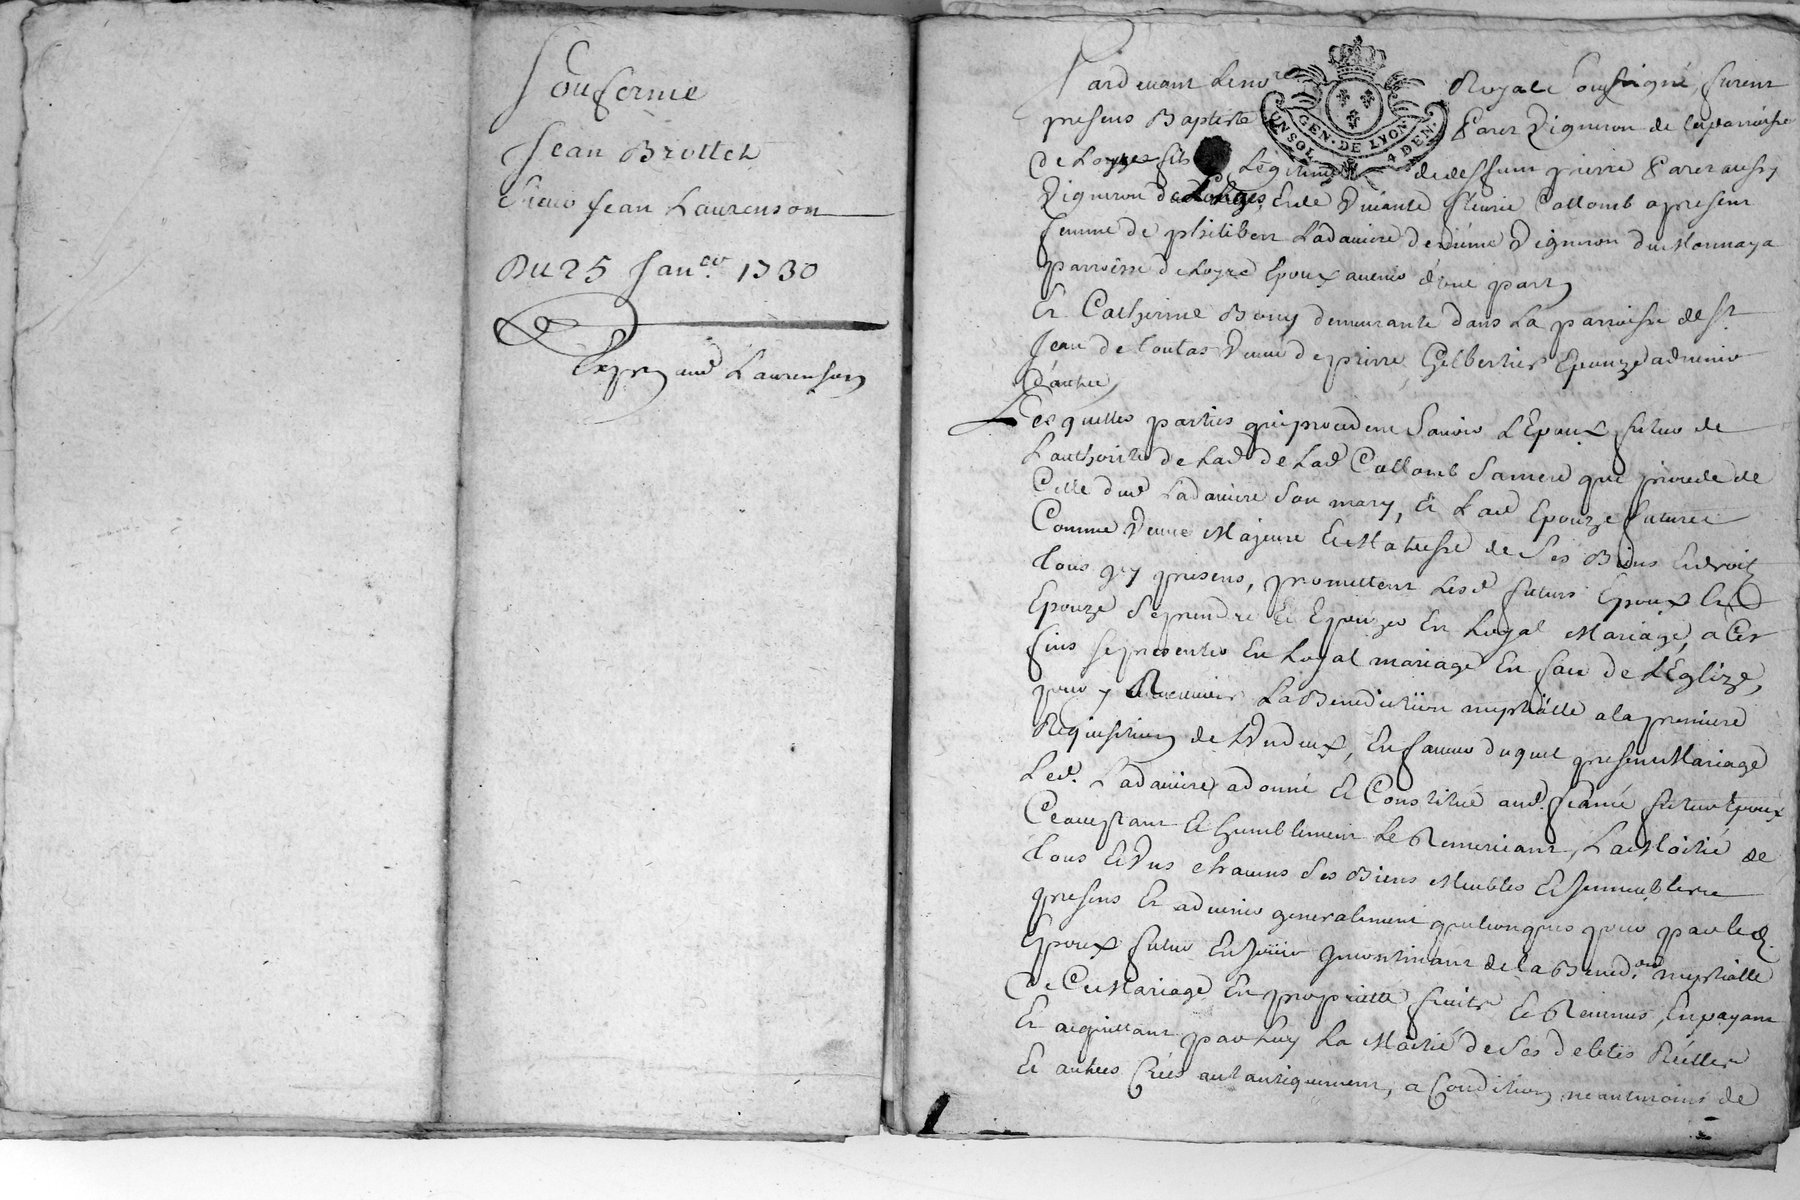 Jean Brottet
Sieur Jean Laurenson
Du 25 Janer. 1730
Expn aud Laurenson
Pardevant Le nore Royale soussigné, furent
UN SOL. GEN. DE LYON. 4 DEN.
presens Baptiste Vigneron de la parroisse
De Loyre fils Légitime de deffunt pierre aussy
Vigneron de Longes, Et de Vivante fleurie Collomb a present
femme de philibert Ladavière Vigneron du
parroisse de Loyre Epoux avenir d'une part
Et Catherine Bony demeurante dans La parroisse de St
Jean de Toulas Veuve de pierre Gilbertier Epouze advenir
D'autre
Lesquelles parties qui procedent Savoir L'Epoux futur de
L'authorité de Lad. de Lad. Collomb Sa mere qui procede de
Celle dud. Ladavière Son mary, Et Lad. Epouze future
Comme Veuve Majeure Et Maitresse de Ses Biens Et droits
Tous icy presens, promettent Lesd. futurs Epoux Et
Epouze Se prendre Et Epouzer En Loyal Mariage, a Ces
fins se presenter En Loyal mariage En face de L'Eglize,
pour y Recevoir La Benediction nuptialle a la premiere
Requisition de L'Vn deux, En faveur duquel present Mariage
Led. Ladavière a donné Et Constitué aud. futur Epoux
Et humblement Le Remerciant, La Moitié de
Tous Et Vns chacuns Ses Biens Meubles Et Immeubles
presens Et advenir generalement quelconques pour par led.
Epoux futur En Jouir Incontinant de la Bened.on nuptialle
De Ce Mariage En proprietté fruits Et Revenus, En payant
Et acquittant par Luy La Moitié de Ses debtes Réelles
Et autres Créés autantiquement, a Condition neantmoins de